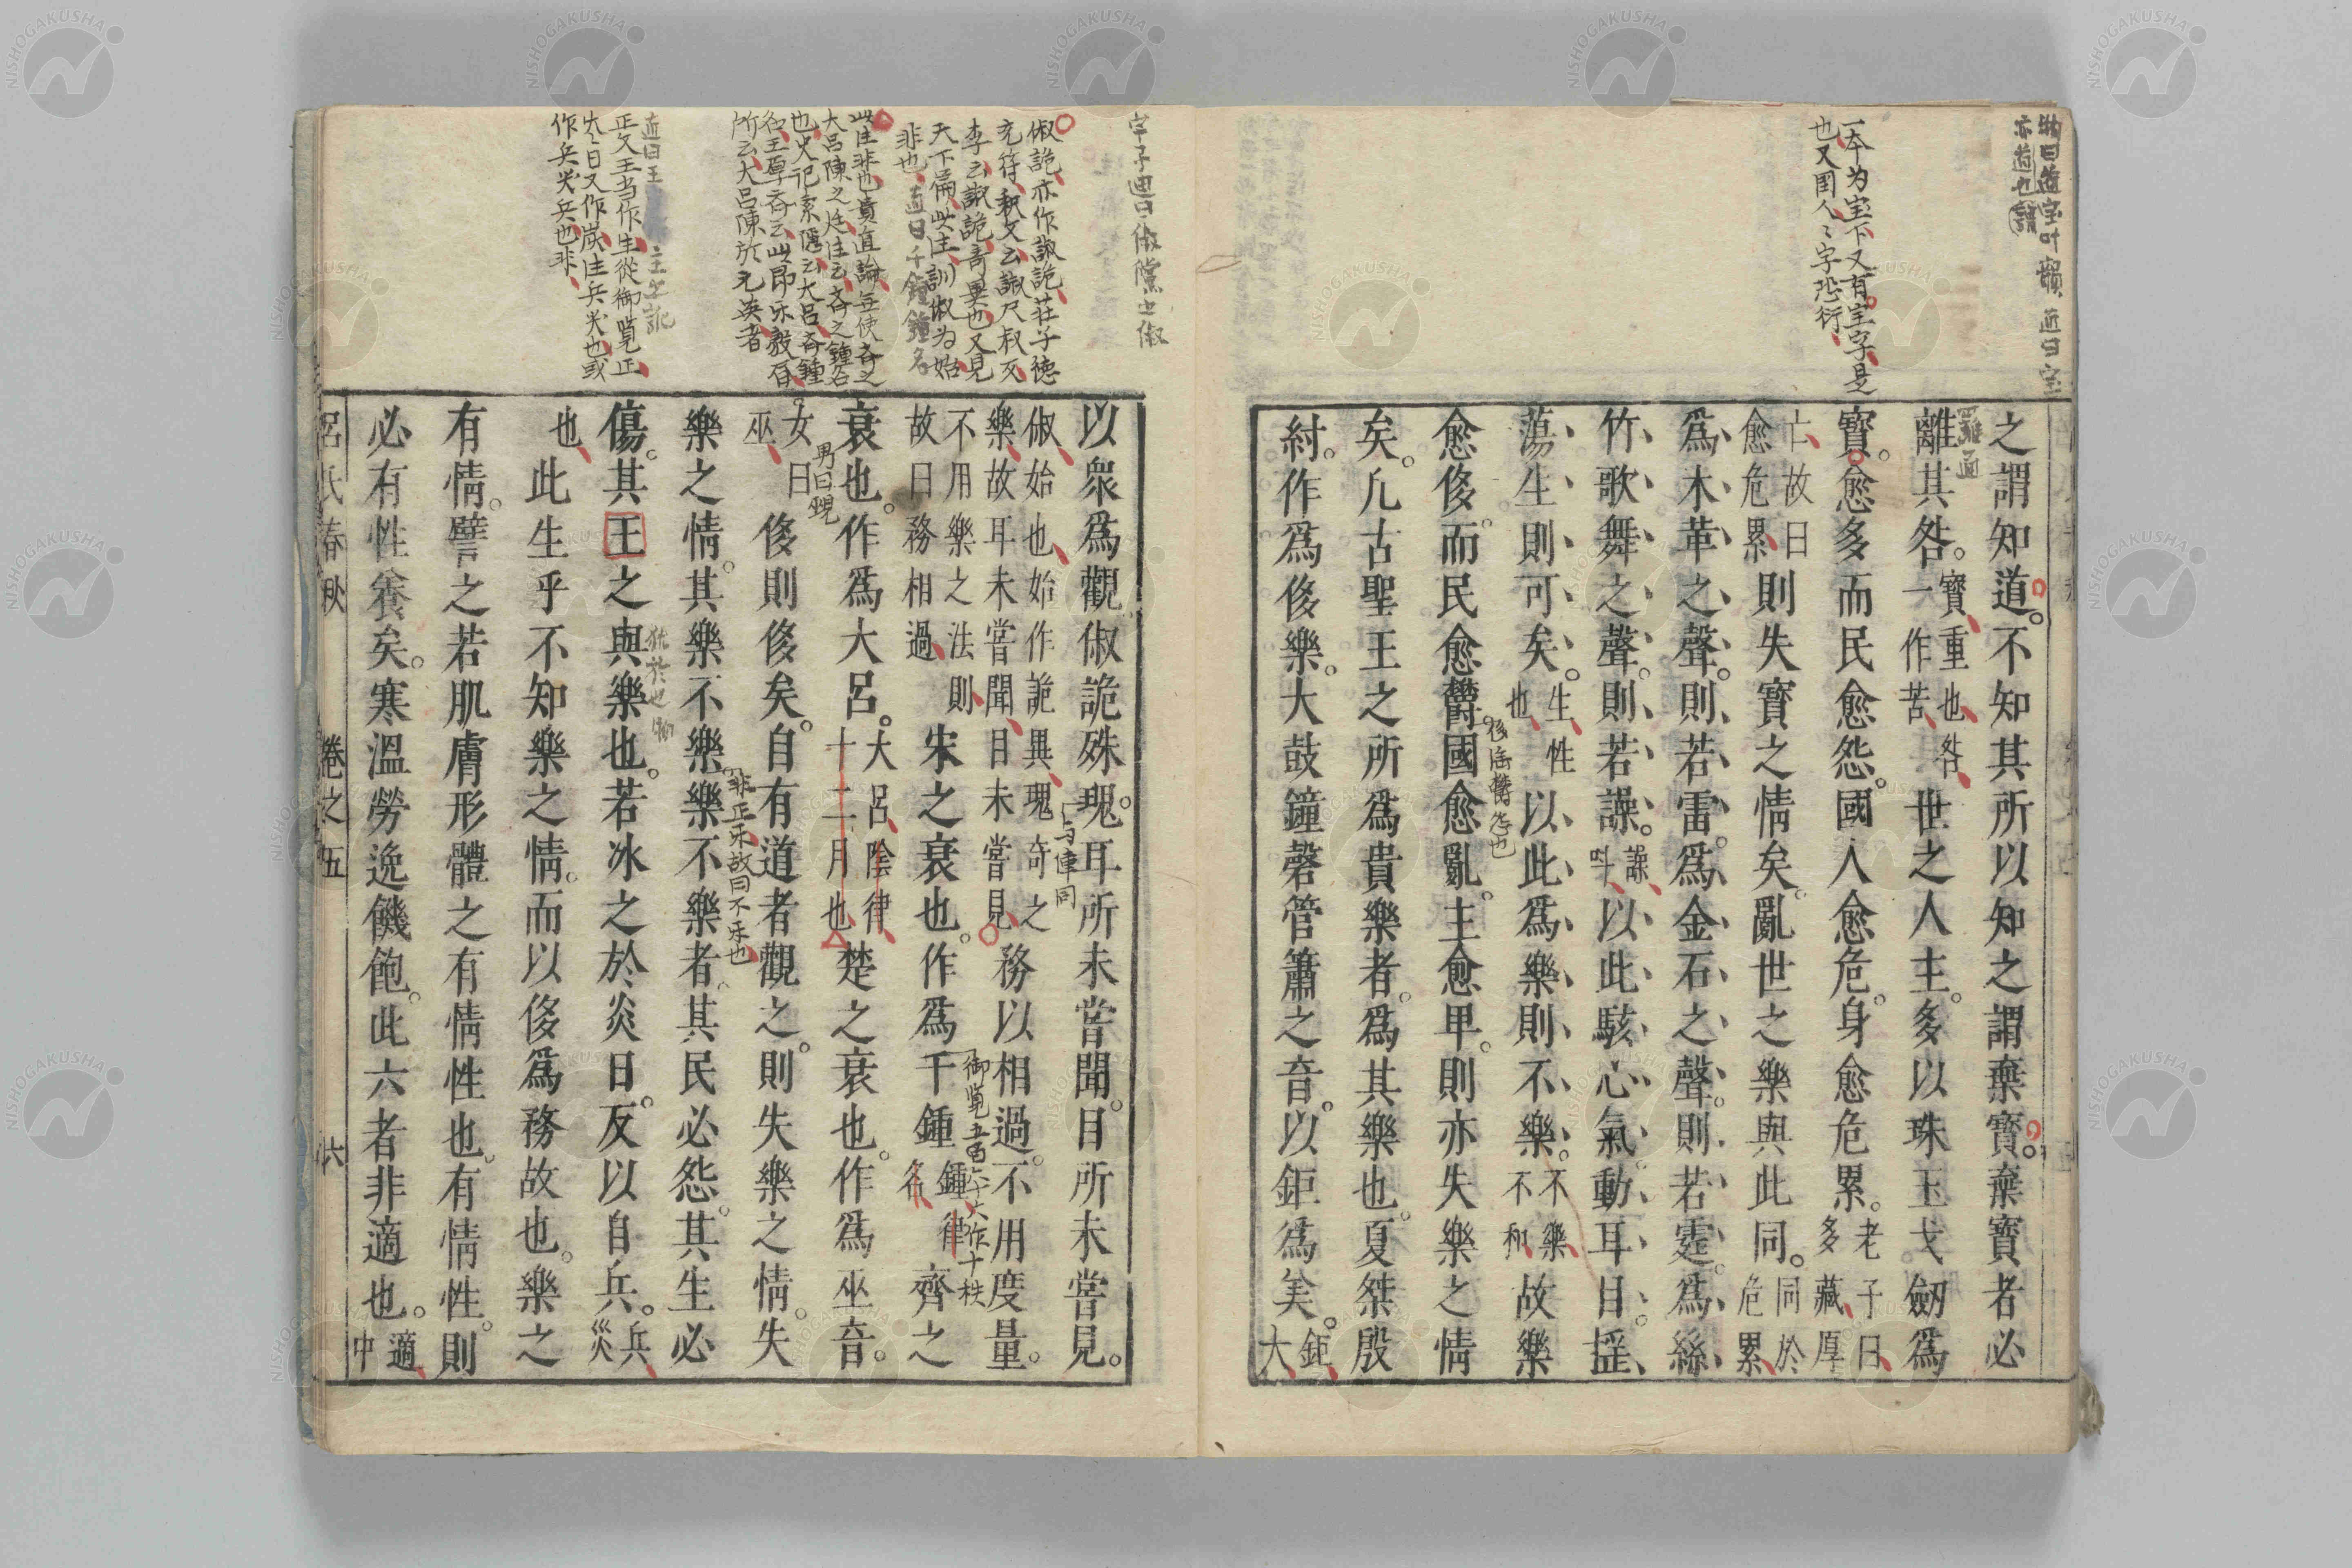 物曰道宝叶韻
亦道也
一本为宝下又有宝字是
也又国人人字恐衍
之謂知道不知其所以知之謂棄寶棄寶者必
離其咎寶重也咎一作苦世之人主多以珠玉戈劒爲
寶愈多而民愈怨國人愈危身愈危累老子曰多藏厚
亡故曰愈危累則失寶之情矣亂世之樂與此同同於危累
爲木革之聲則若雷爲金石之聲則若霆爲絲
竹歌舞之聲則若譟譟叫以此駭心氣動耳目揺
蕩生則可矣生性也以此爲樂則不樂不樂不和故樂
愈侈而民愈欝國愈亂主愈卑則亦失樂之情
矣凡古聖王之所爲貴樂者爲其樂也夏桀殷
紂作爲侈樂大鼓鐘磬管簫之音以鉅爲美鉅大
俶詭亦作諔詭荘子徳
充符釈文云諔尺叔又
李云諔詭奇異也又見
天下篇此注訓俶为始
非也
此注非也貴直論無使斉之
大呂陳之廷注云斉之鍾名
也史记索隠云大呂斉鍾
名王厚斉云此即乐毅
所云大呂陳於元英者
正文王当作生從御覧正
作兵災兵也非
以衆爲觀俶詭殊瑰耳所未嘗聞目所未嘗見
俶始也始作詭異瑰奇之樂故耳未嘗聞目未嘗見務以相過不用度量
不用樂之法則故曰務相過宋之衰也作爲千鍾鍾律名齊之
衰也作爲大呂大呂陰律十二月也楚之衰也作爲巫音
女曰巫侈則侈矣自有道者觀之則失樂之情失
男曰覡
樂之情其樂不樂樂不樂者其民必怨其生必
非正乐故曰不乐也
傷其王之與樂也若冰之於炎日反以自兵兵災
也此生乎不知樂之情而以侈爲務故也樂之
有情譬之若肌膚形體之有情性也有情性則
必有性養矣寒溫勞逸饑飽此六者非適也適中
呂氏春秋 卷之五 六
NISHOGAKUSHA